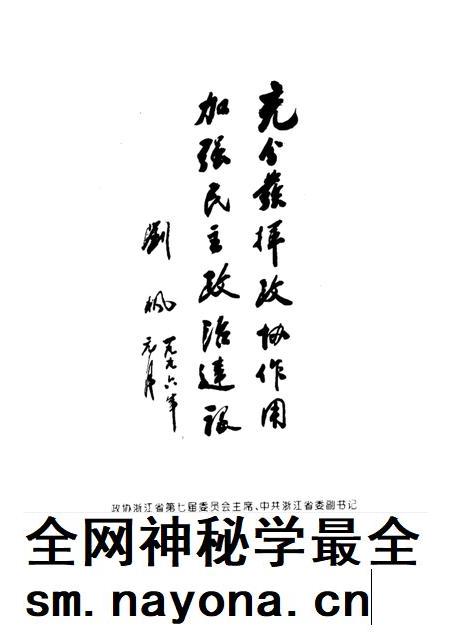 充分發揮政协作用
加强民主政治建设
劉枫
一九九六年
元月
政协浙江省第七届委员会主席、中共浙江省委副书记
全网神秘学最全
sm.nayona.cn